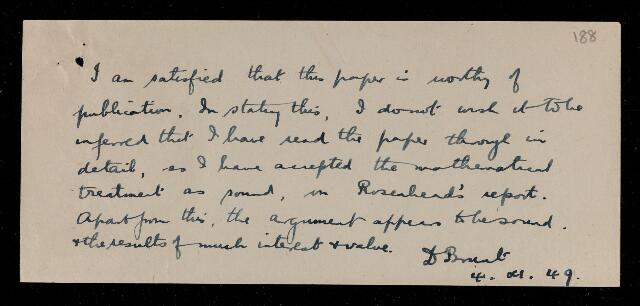 188
I am satisfied that this paper is worthy of
publication. In stating this, I do not wish it to be
inferred that I have read the paper through in
detail, as I have accepted the mathematical
treatment as sound, on Rosenhead's report.
Apart from this, the argument appears to be sound.
& the results of much interest & value. D Brunt
4. 49.